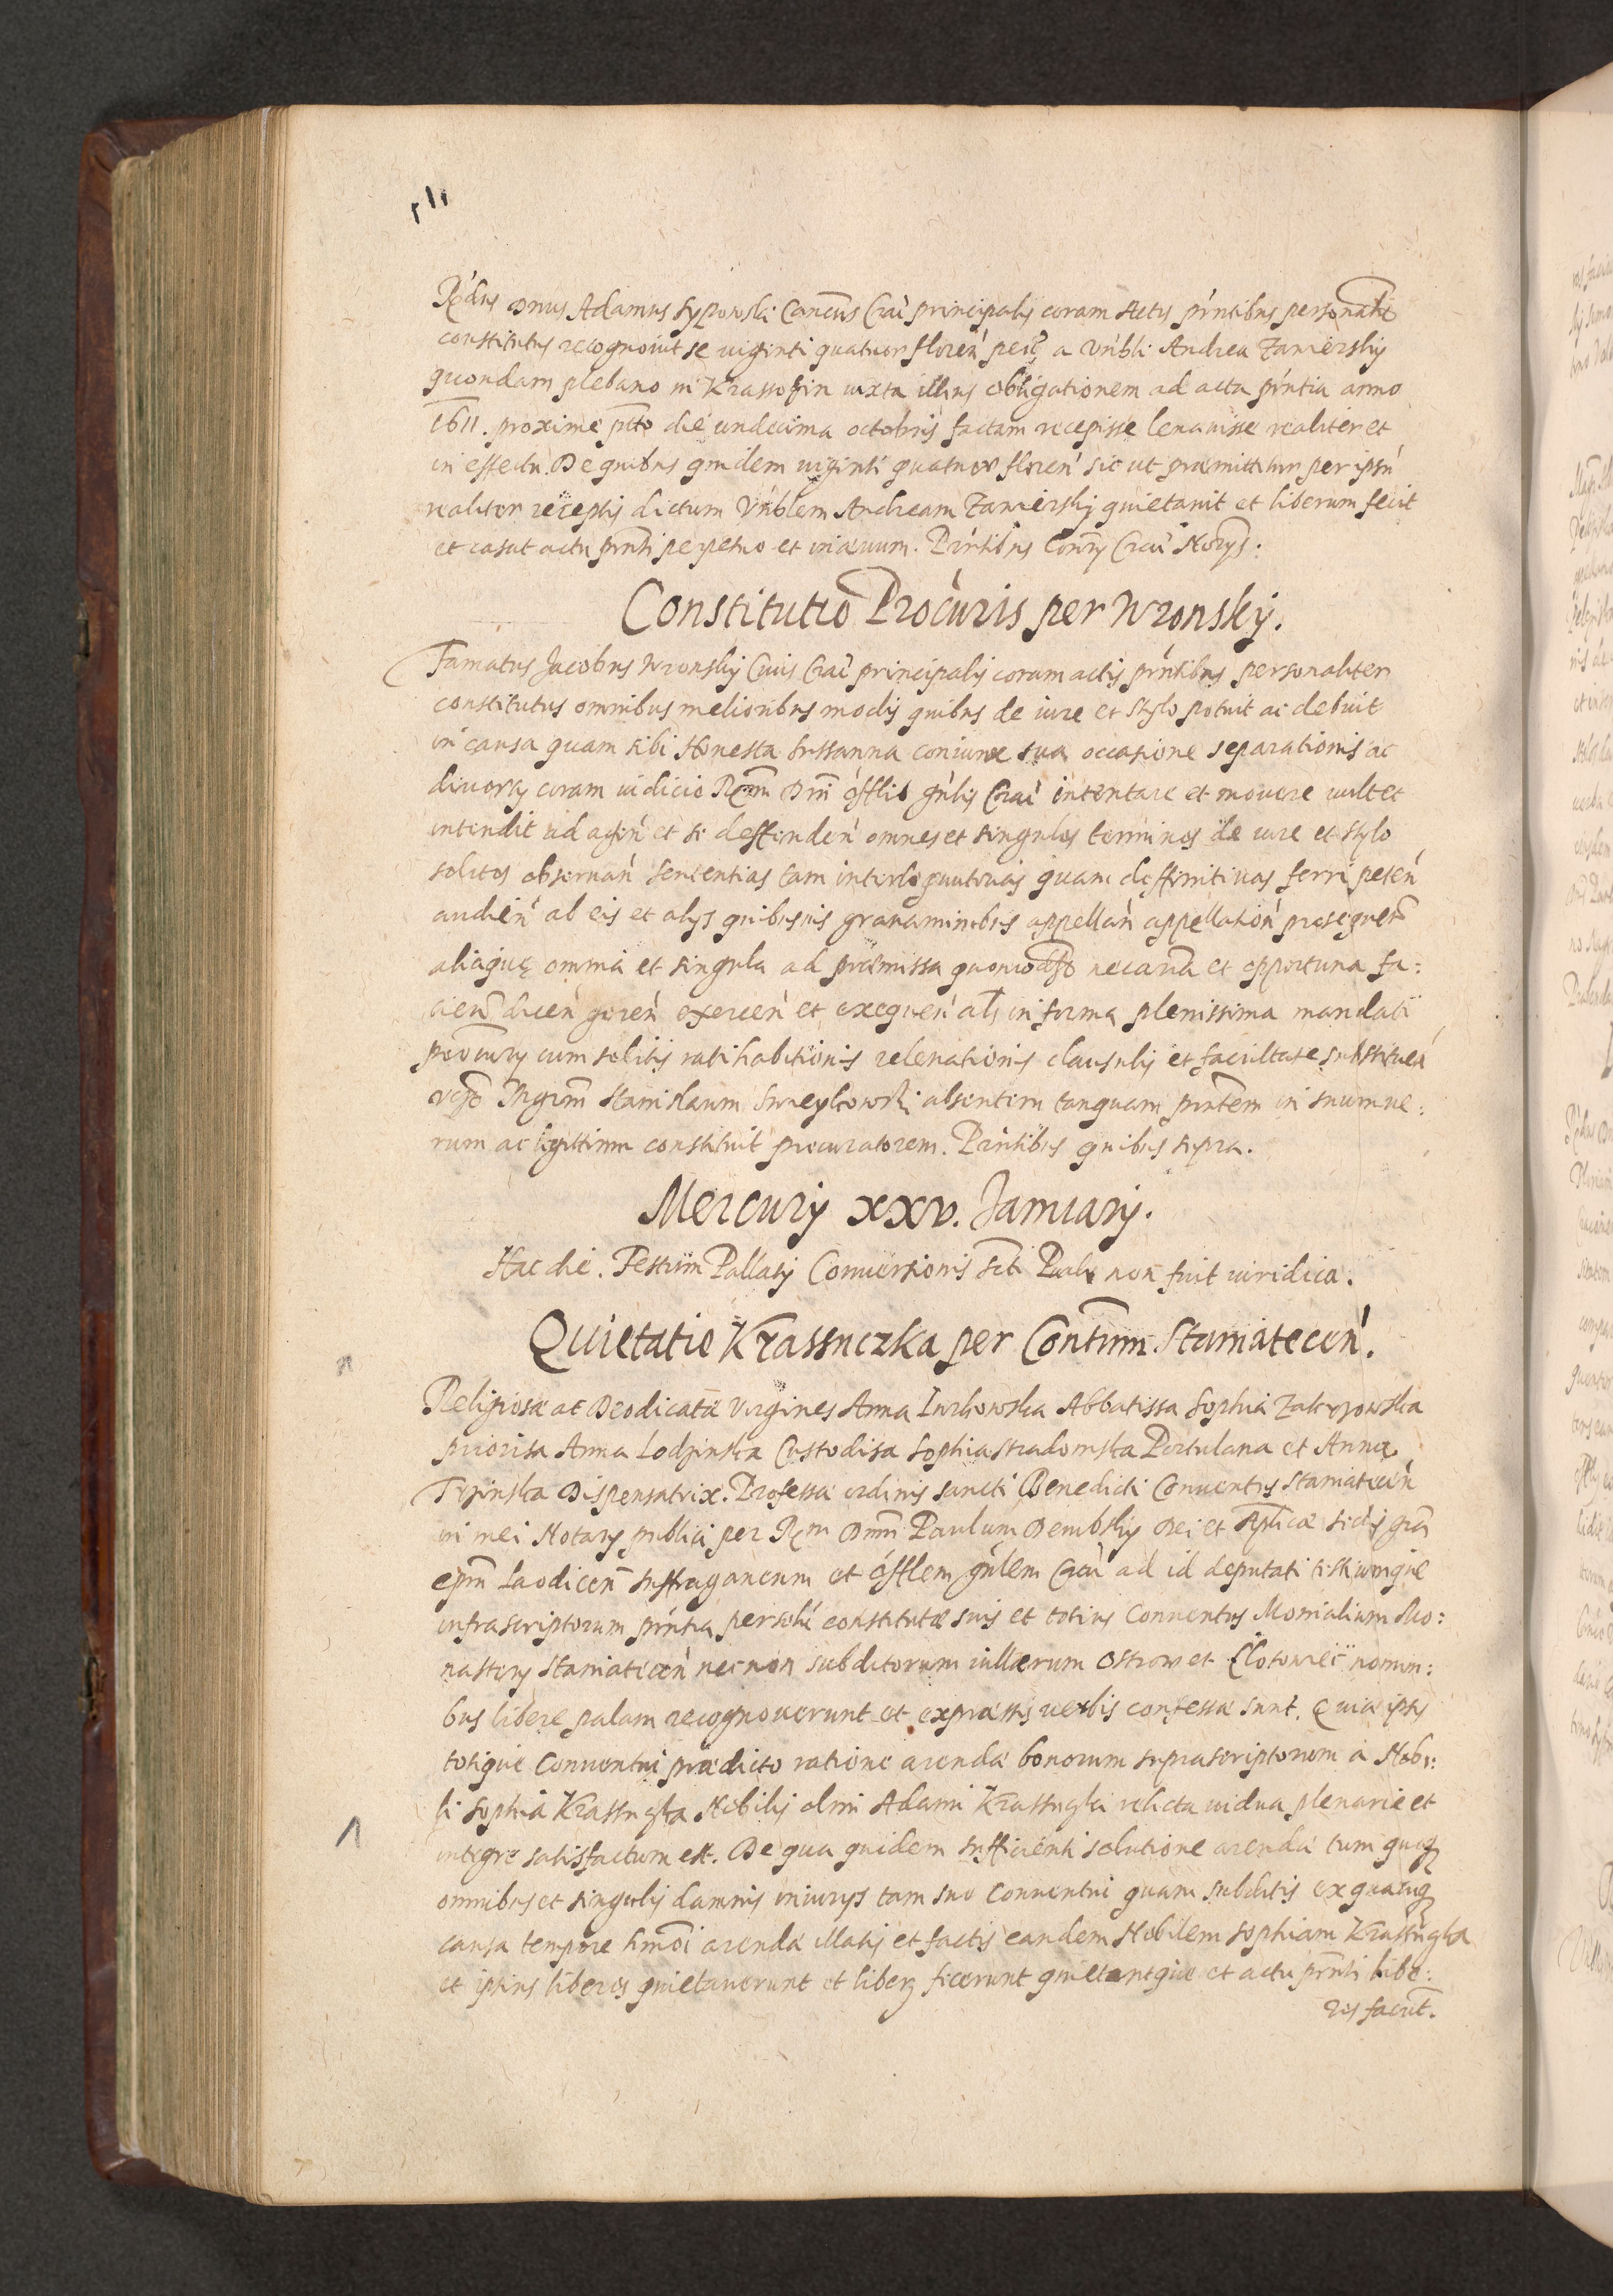 Rd̕us Dnus Adamus Sypowski Canc̄us Craĉ principalis coram Actis prn̄tibus personalit̄
constitutus recognouit se viginti quatuor floreń pecc̨ a Vn̄bli Andrea Zamierskÿ
quondam plebano in Krassoszin iuxta illius obligationem ad acta prn̄tia anno
1611. proxime pn̄to die undecima octobris factam recepisse leuauisse realiter et
in effectu. De quibus quidem viginti quatuor floreń sic ut præmittitur per ipsū
realiter receptis dictum Vn̄blem Andream Zamierskÿ quietauit et liberum fecit
et cassat actu prn̄ti perpetuo et in æuum. Prn̄tibus Cons̄ry Craĉ Norÿs:
Constitutio Procuris per Wronskÿ.
Famatus Jacobus Wronskÿ Ciuis Craĉ principalis coram actis prn̄tibus personaliter
constitutus omnibus melioribus modis quibus de iure et stylo potuit ac debuit
in causa quam sibi Honesta Sussanna coniunx sua occasione separationis ac
diuortÿ coram iudicio Rm̄ Dn̄i offlis gn̄lis Craĉ intentare et mouere vult et
intendit ad agen̄ et se deffenden̄ omnes et singulos terminos de iure et stylo
solitos obseruan̄ sententias tam interloquutorias quam deffinitiuas ferri peten̄
audien̄ ab eis et alÿs quibusuis grauaminibus appellan̄ appellation̄ prosequen̄
aliaque omnia et singula ad præmissa quomodolt̄ necaria et opportuna fa:
cien̄ dicen̄ geren̄ exercen̄ et exequen̄ als in forma plenissima mandati
procurÿ cum solitis ratihabitionis releuationis clausulis et facultate substituen̄
vnīo Mgrm̄ Stanislaum absentem tanquam prn̄tem in suum ve:
rum ac legittimū constituit procuratorem. Prn̄tibus quibus supra.
Mercurÿ xxv. Januarÿ.
Hac die. Festum Pallatÿ Conuersionis Scti Pauli non fuit iuridica.
Quietatio Krassuczka per Conuentum Staniatecen̄.
Religiosæ ac Deodicatæ Virgines Anna Iurkowska Abbatissa Sophia Zakrzowska
priorissa Anna Lodzinska Custodissa Sophia Stradomska Portulana et Anna
Trzinska Dispensatrix. Professæ ordinis sancti Benedicti Conuentus Staniatecen̄
in mei Notarÿ publici per Rm̄ Dnm̄ Paulum Dembskÿ Dei et Aplicæ Sedis grā
epm̄ Laodicen̄ suffraganeum et offlem gn̄lem Craĉ ad id deputati testiumque
infrascriptorum prn̄tia person̄ constitutæ suis et totius Conuentus Monialium Mo:
nasterÿ Staniatecen̄ necnon subditorum villarum Ostrow et nomini:
bus libere palam recognouerunt et expressis verbis confessæ sunt. Quia ipsis
totique Conuentui prædicto ratione arendæ bonorum suprascriptorum a Nobi:
li Sophia Krassuczka Nobilis olim Adami Krassuczki relicta vidua plenarie et
integre satisfactum est. De qua quidem sufficienti solutione arendæ tum quoq̨
omnibus et singulis damnis iniurÿs tam suo Conuentui quam subditis ex quacunq̨
causa tempore hm̄oi arendæ illatis et factis eandem Nobilem Sophiam Krassuczka
et ipsius liberos quietauerunt et liberos fecerunt quietantque et actu prn̄ti libe:
ros faciūt.